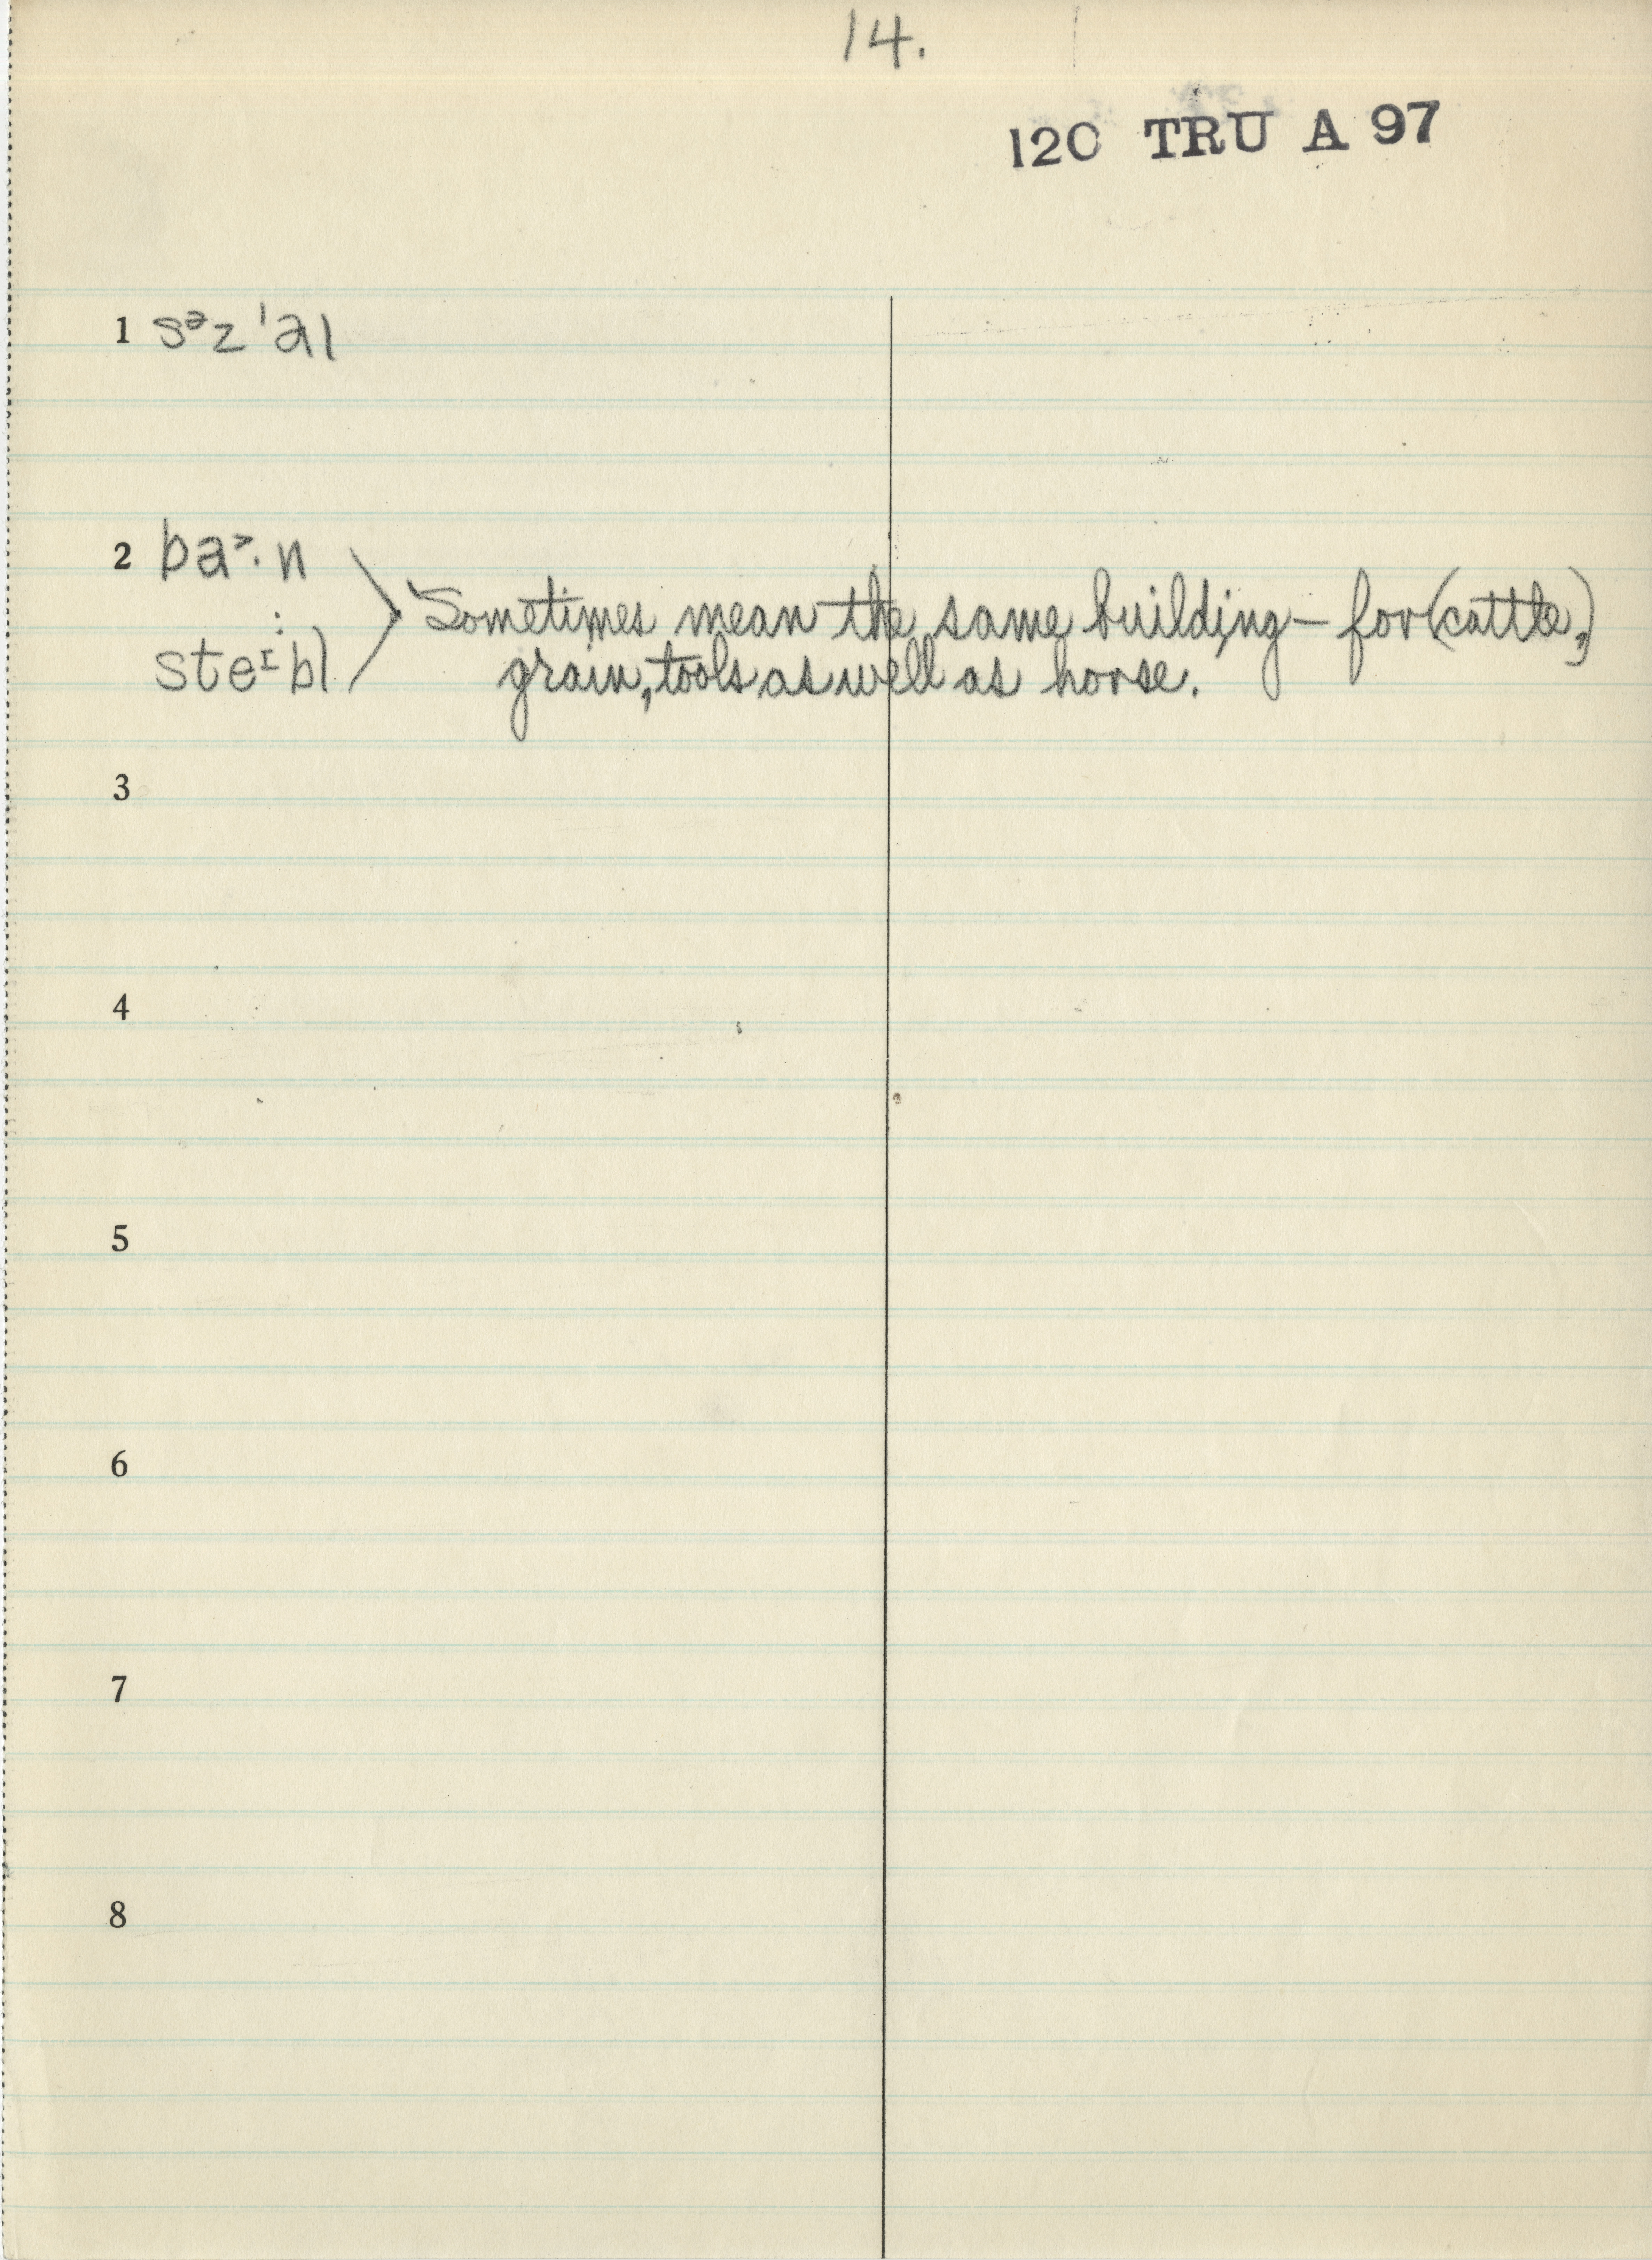 14.
120 TRU A 97
1 sᵊz'al
2 ba˃·n
ste ͥ·bl
Sometimes mean the same building – for (cattle,)
grain, tools as well as horse.
3
4
5
6
7
8